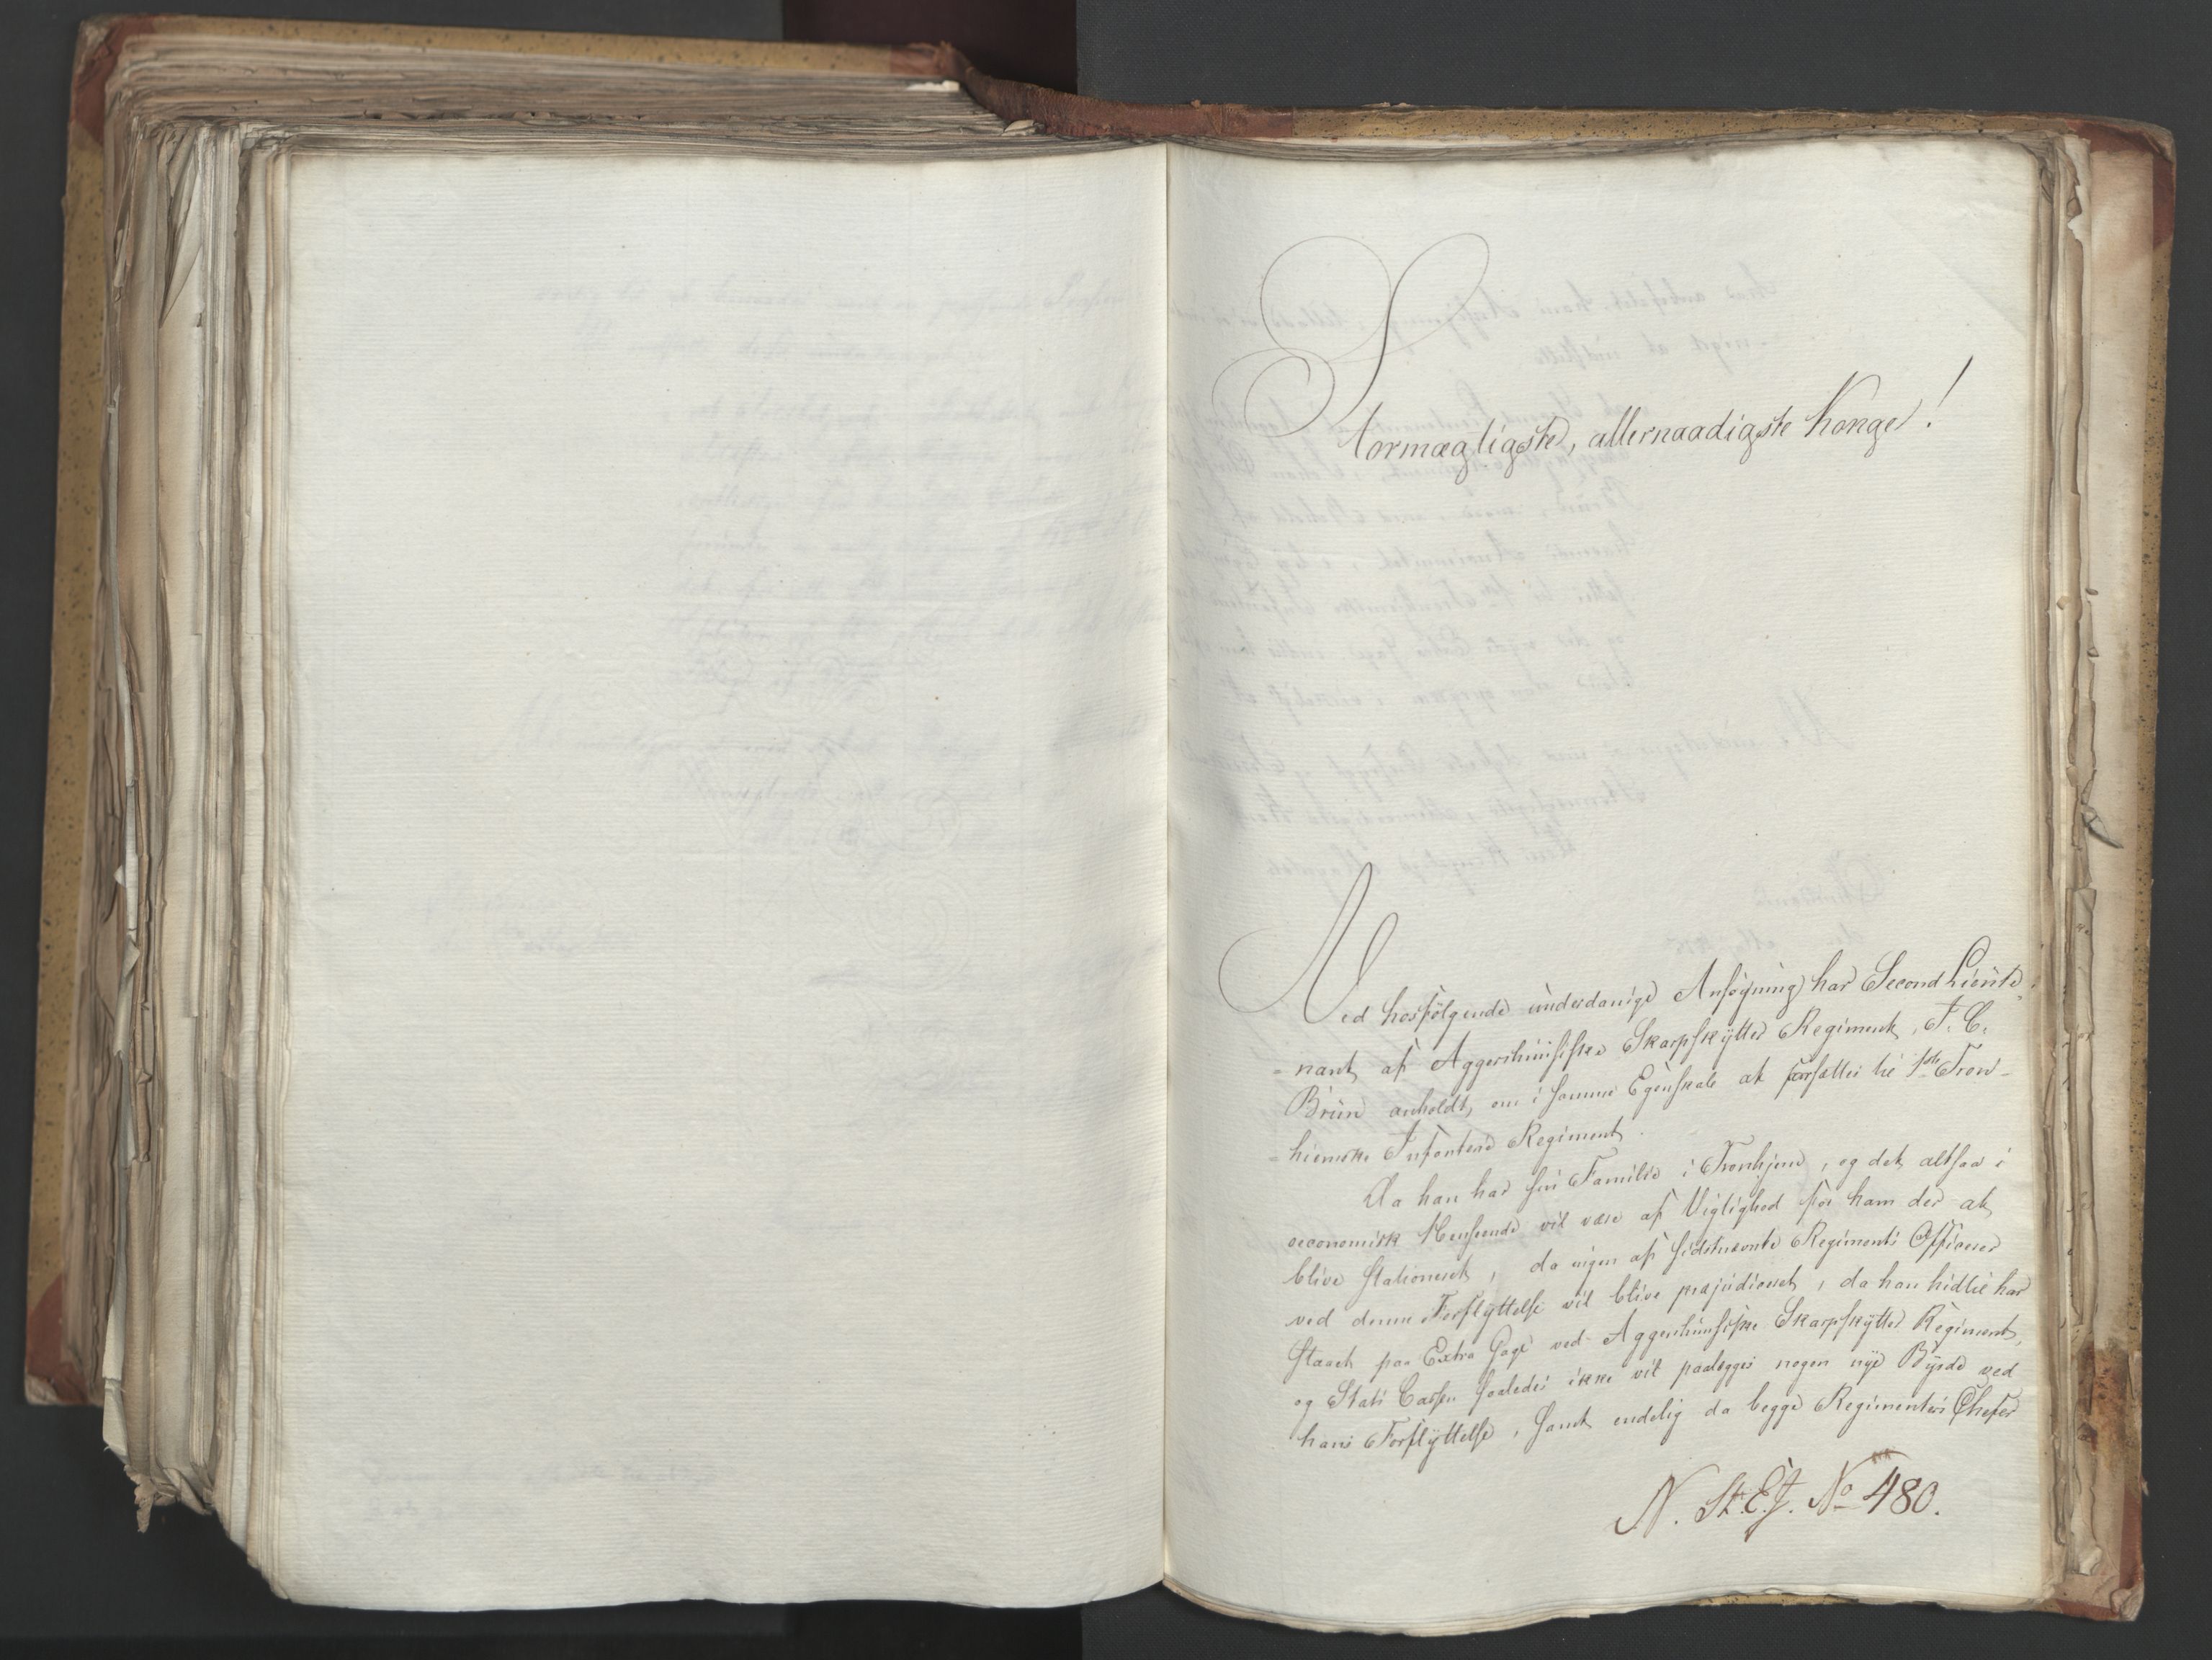 Stormægtigste, allernaadigste Konge!
Ved hosfølgende underdanige Ansøgning har Second Lieute-
-nant af Aggershuusiske Skarpskytter Regiment, F. C.
Brun anholdt, om i samme Egenskab at forsættes til 1ste Tron-
-hiemske Infanterie Regiment.
Da han har sin Familie i Tronhjem, og det altsaa i
oeconomisk Henseende vil være af Vigtighed for ham der at
blive stationeret, da ingen af sidstnævnte Regiments Officerer
ved denne Forflyttelse vil blive præjudiceret, da han hidtil har
staaet paa Extra Gage ved Aggershuusiske Skarpskytter Regiment,
og Stats Cassen saaledes ikke vil paalægges nogen nye Byrde ved
hans Forflyttelse, samt endelig da begge Regimenters Chefer
N. St. E. J. No 480.